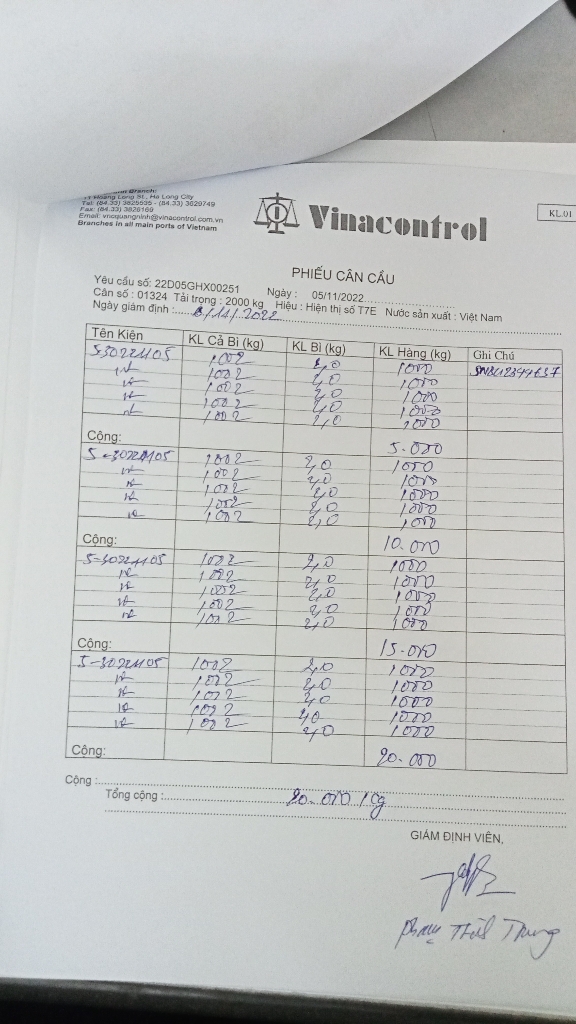 Hoang Long St., Ha Long City
Tel: (84.33) 3825535 - (84.33) 3629749
Fax: (84.33) 3826169
Email: vncquangninh@vinacontrol.com.vn
Branches in all main ports of Vietnam
Vinacontrol
KL.01
PHIẾU CÂN CẨU
Yêu cầu số: 22D05GHX00251 Ngày: 05/11/2022
Cân số : 01324 Tải trọng : 2000 kg Hiệu : Hiện thị số T7E Nước sản xuất : Việt Nam
Ngày giám định : /11/2022
Tên Kiện KL Cả Bì (kg) KL Bì (kg) KL Hàng (kg) Ghi Chú
1002 2,0 1000
1002 2,0 1000
1002 2,0 1000
1002 2,0 1000
1002 2,0 1000
Cộng: 5.000
1002 2,0 1000
1002 2,0 1000
1002 2,0 1000
1002 2,0 1000
1002 2,0 1000
Cộng: 10.000
1002 2,0 1000
1002 2,0 1000
1002 2,0 1000
1002 2,0 1000
1002 2,0 1000
Cộng: 15.000
1002 2,0 1000
1002 2,0 1000
1002 2,0 1000
1002 2,0 1000
1002 2,0 1000
Cộng: 20.000
Cộng :
Tổng cộng : 20.000 kg
GIÁM ĐỊNH VIÊN,